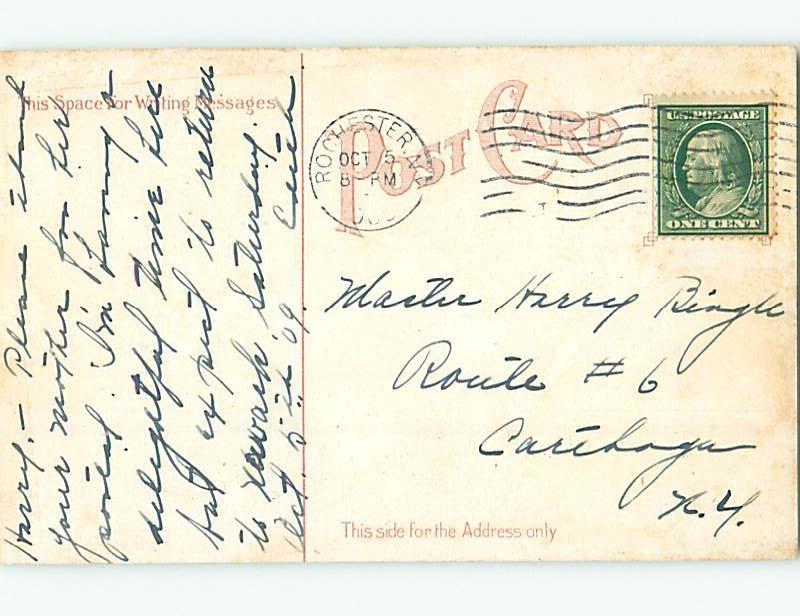 This Space for Writing Messages
POST CARD
ROCHESTER, N.Y.
OCT 5
8 PM
U.S. POSTAGE
ONE CENT
Harry. - Please thank
your mother for her
postal. I'm having a
delightful time here
but expect to return
to Newark Saturday.
Oct. 5 - '09.
Master Harry Bingle
Route # 6
Cayuga
N.Y.
This side for the Address only